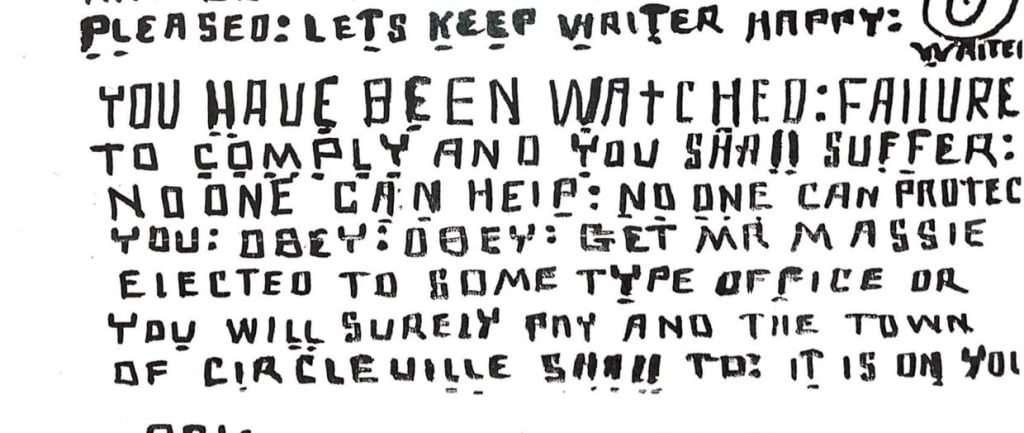 PLEASED: LETS KEEP WRITER HAPPY:
WRITE
YOU HAVE BEEN WATCHED: FAIIURE
TO COMPLY AND YOU SHAll SUFFER:
NO ONE CAN HEIP: NO ONE CAN PROTEC
YOU: OBEY: OBEY: GET MR MASSIE
EIECTED TO SOME TYPE OFFICE OR
YOU WILL SUREIY PAY AND THE TOWN
OF CIRCLEVILLE SHAll TO: IT IS ON YOU